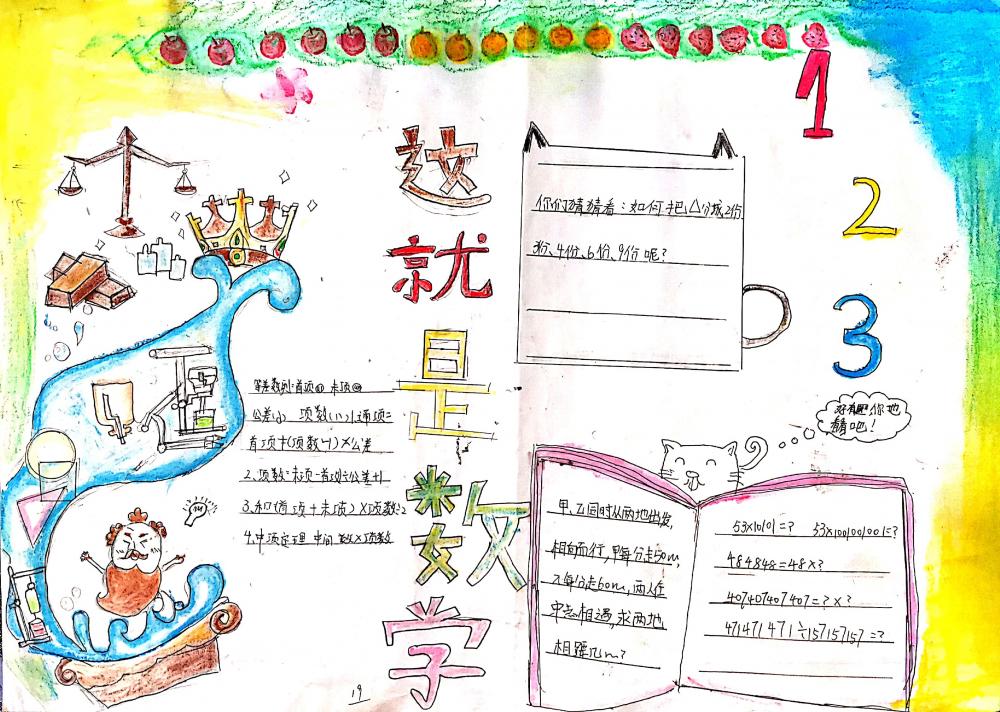 这就是数学
1
2
3
你们猜猜看:如何把△分成2份
3份、4份、6份、9份呢?
等差数列:首项a1 末项an
公差d 项数(n)1.通项=
首项+(项数-1)×公差
2.项数=末项-首项÷公差+1
3.和=(首项+末项)×项数÷2
4.中项定理 中间数×项数
你也
猜吧!
甲乙同时从两地出发,
相向而行,甲每分走50m,
乙每分走60m,两人在
中点相遇,求两地
相距几m?
53×101=? 53×1001001=?
484848=48×?
407407407=?×?
471471471÷157157157=?
19